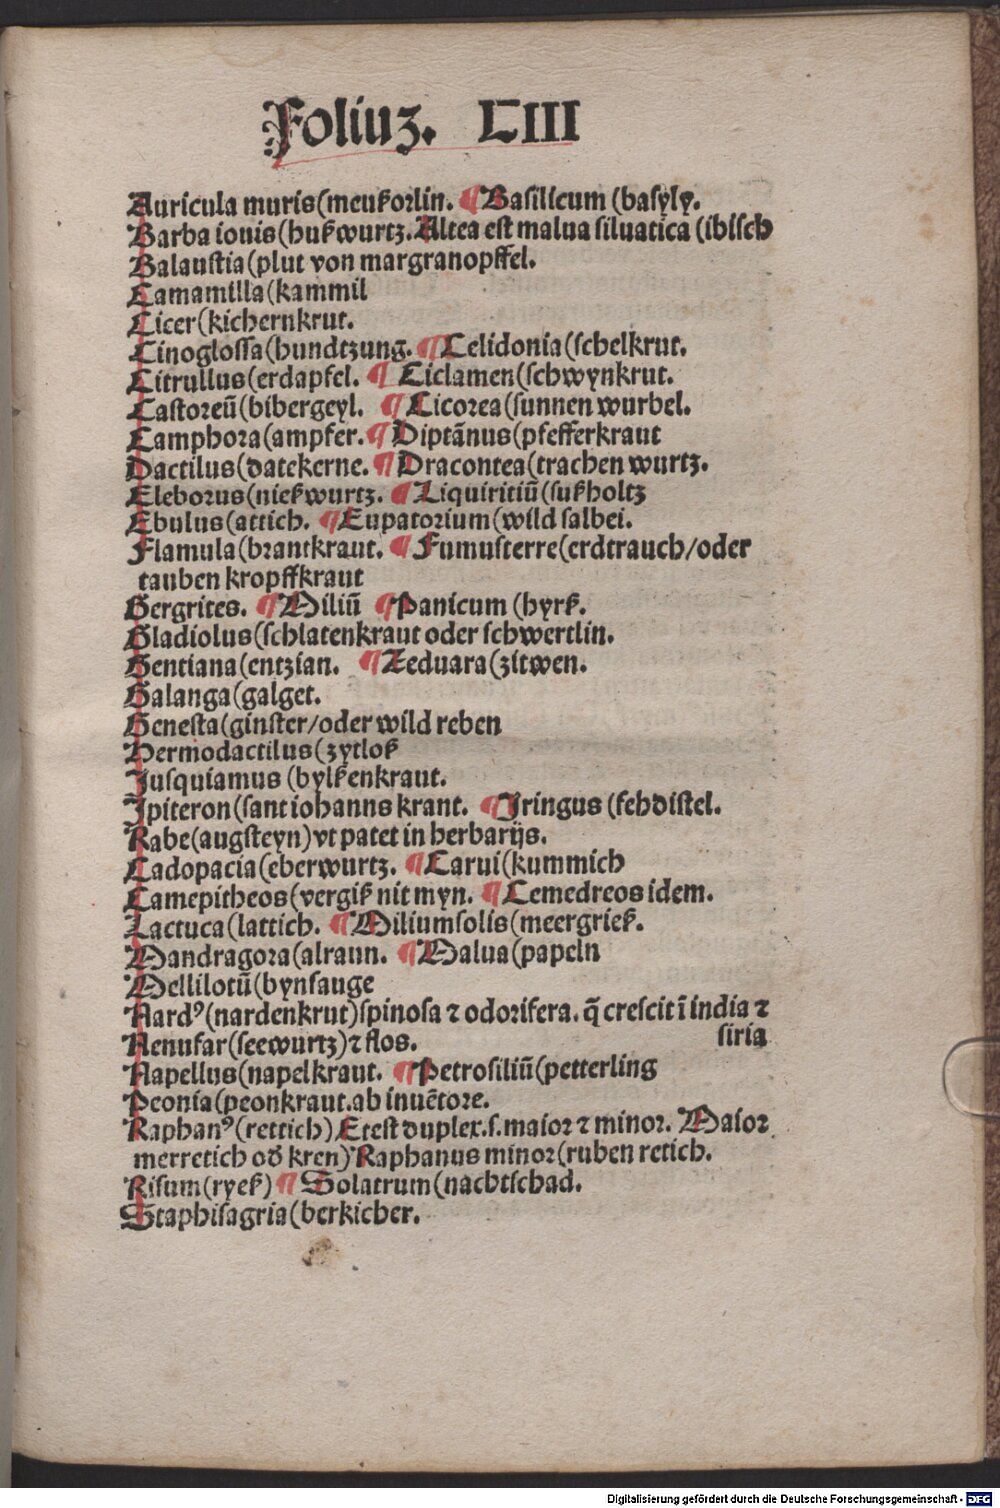 Foliuz. LIII
Auricula muris(meußorlin. ¶Basilicum (basyly.
Barba iouis(hußwurtz. Altea est malua siluatica (ibisch
Balaustia(plut von margranopffel.
Camamilla(kammil
Cicer(kichernkrut.
Cinoglossa(hundtzung. ¶Celidonia(schelkrut.
Citrullus(erdapfel. ¶Ciclamen(schwynkrut.
Castoreū(bibergeyl. ¶Cicorea(sunnen wurbel.
Camphora(ampfer. ¶Diptānus(pfefferkraut
Dactilus(datekerne. ¶Dracontea(trachen wurtz.
Eleborus(nießwurtz. ¶Liquiritiū(sußholtz
Ebulus(attich. ¶Eupatorium(wild salbei.
Flamula(brantkraut. ¶Fumusterre(erdtrauch/oder
tauben kropffkraut
Gergrites. ¶Miliū ¶Panicum (hyrß.
Gladiolus(schlatenkraut oder schwertlin.
Gentiana(entzian. ¶Zeduara(zitwen.
Galanga(galget.
Genesta(ginster/oder wild reben
Hermodactilus(zytloß
Jusquiamus (bylßenkraut.
Jpiteron(sant iohanns krant. ¶Jringus (fehdistel.
Kabe(augsteyn)vt patet in herbarijs.
Cadopacia(eberwurtz. ¶Carui(kummich
Camepitheos(vergiß nit myn. ¶Cemedreos idem.
Lactuca(lattich. ¶Miliumsolis(meergrieß.
Mandragora(alraun. ¶Malua(papeln
Mellilotū(bynsauge
Nardꝰ(nardenkrut)spinosa ⁊ odorifera. q̄ crescit ī india ⁊
siria
Nenufar(seewurtz)⁊ flos.
Napellus(napelkraut. ¶Petrosiliū(petterling
Peonia(peonkraut.ab inuētore.
Raphanꝰ(rettich) Et est duplex.s.maior ⁊ minor. Maior
merretich oď kren) Raphanus minor(ruben retich.
Risum(ryeß) ¶Solatrum(nachtschad.
Staphisagria(berkicher.
Digitalisierung gefördert durch die Deutsche Forschungsgemeinschaft - DFG